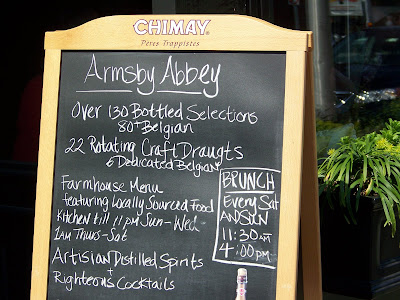 CHIMAY
Peres Trappistes
Armsby Abbey
Over 130 Bottled Selections
80+ Belgian
22 Rotating Craft Draugts
6 Dedicated Belgian
Farmhouse Menu
featuring Locally Sourced Food
Kitchen till 11pm Sun-Wed
1am Thurs-Sat
Artisian Distilled Spirits
+
Righteous Cocktails
BRUNCH
Every Sat
AND SUN
11:30 AM
4:00 PM